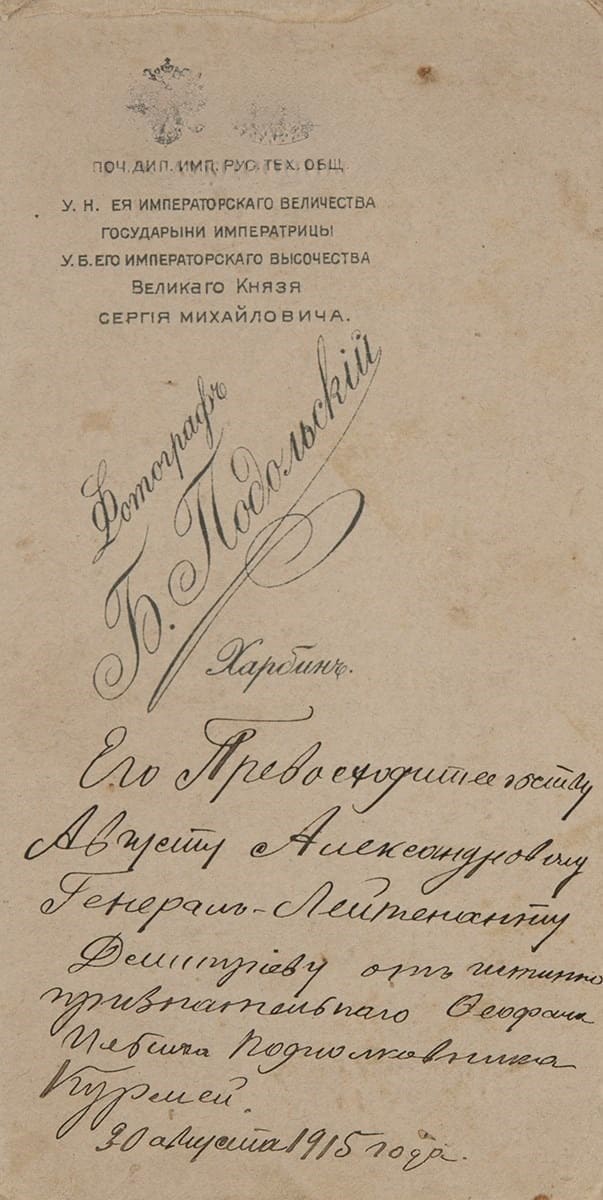 ПОЧ. ДИП. ИМП. РУС. ТЕХ. ОБЩ.
У. Н. ЕЯ ИМПЕРАТОРСКАГО ВЕЛИЧЕСТВА
ГОСУДАРЫНИ ИМПЕРАТРИЦЫ
У. Б. ЕГО ИМПЕРАТОРСКАГО ВЫСОЧЕСТВА
ВЕЛИКАГО КНЯЗЯ
СЕРГІЯ МИХАЙЛОВИЧА.
Фотографъ
Б. Подольскій
Харбинъ.
Его Превосходительству
Августу Александровичу
Генералъ-Лейтенанту
Дмитріеву отъ истинно
признательнаго Ѳеофана
Подполковника
Курмей.
30 августа 1915 года.